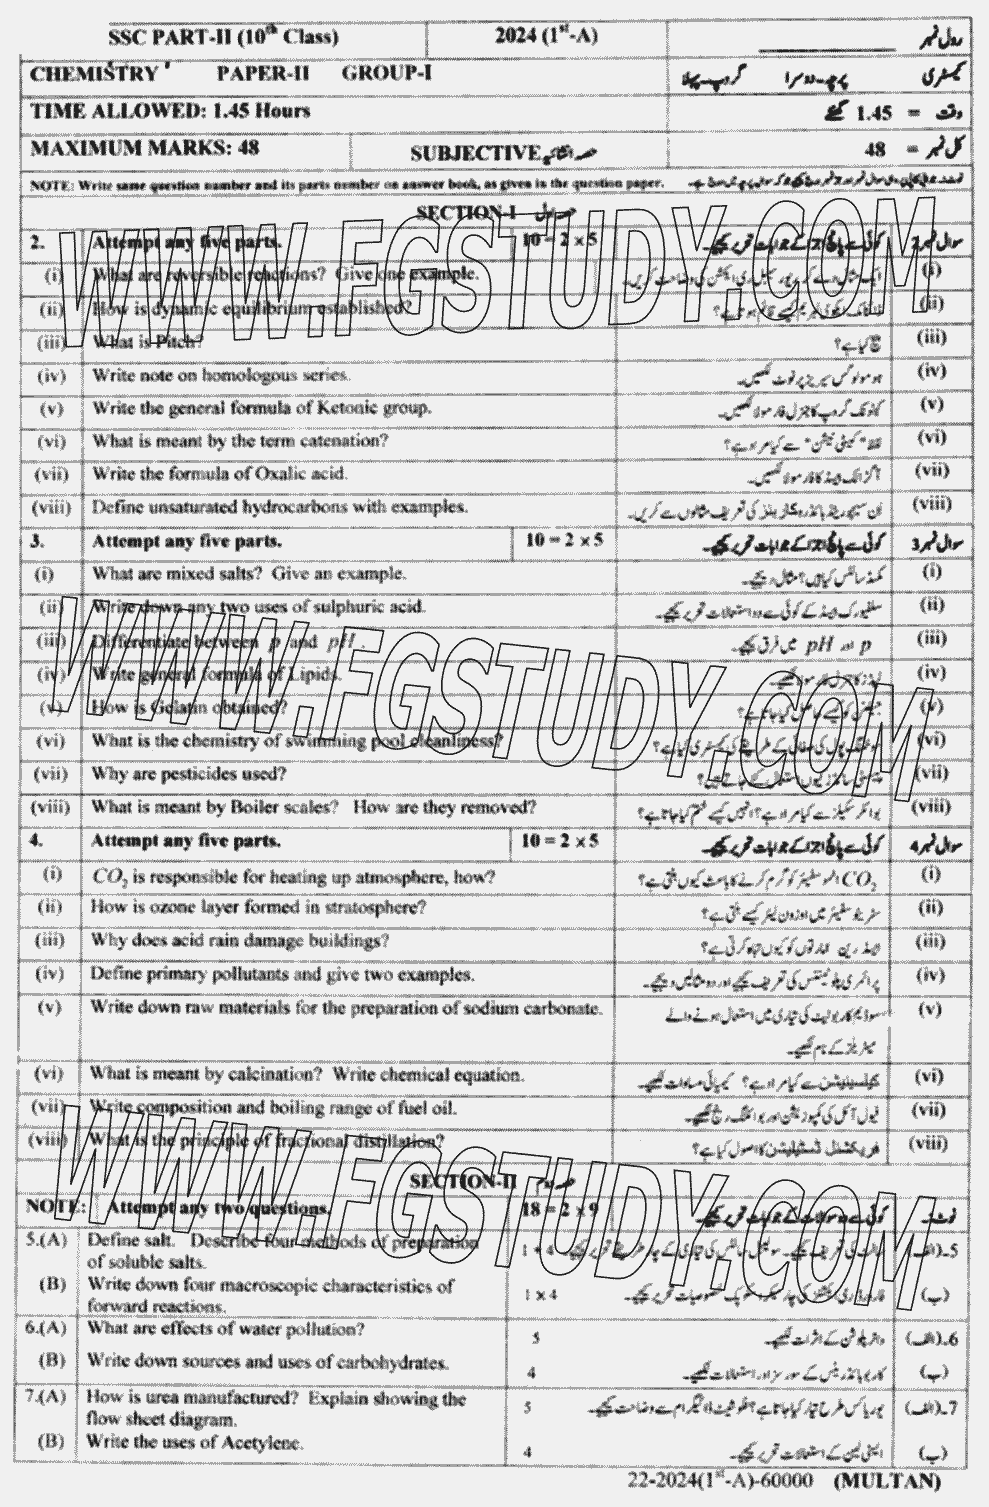 SSC PART-II (10th Class) 2024 (1st-A) رول نمبر
CHEMISTRY PAPER-II GROUP-I کیمسٹری پرچہ۔دوسرا گروپ۔پہلا
TIME ALLOWED: 1.45 Hours وقت = 1.45 گھنٹے
MAXIMUM MARKS: 48 SUBJECTIVE حصہ انشائیہ کل نمبر = 48
NOTE: Write same question number and its parts number on answer book, as given in the question paper.
SECTION-I حصہ اول
2. Attempt any five parts. 10 = 2 × 5 سوال نمبر2 کوئی سے پانچ اجزا کے جوابات تحریر کیجیے۔
(i) What are reversible reactions? Give one example. (i)
(ii) How is dynamic equilibrium established? (ii)
(iii) What is Pitch? پچ کیا ہے؟ (iii)
(iv) Write note on homologous series. ہومولوگس سیریز پر نوٹ لکھیں۔ (iv)
(v) Write the general formula of Ketonic group. کیٹونک گروپ کا جنرل فارمولا لکھیں۔ (v)
(vi) What is meant by the term catenation? لفظ "کیٹی نیشن" سے کیا مراد ہے؟ (vi)
(vii) Write the formula of Oxalic acid. آگزالک ایسڈ کا فارمولا لکھیں۔ (vii)
(viii) Define unsaturated hydrocarbons with examples. ان سیچوریٹڈ ہائڈروکاربنز کی تعریف مثالوں سے کریں۔ (viii)
3. Attempt any five parts. 10 = 2 × 5 سوال نمبر3 کوئی سے پانچ اجزا کے جوابات تحریر کیجیے۔
(i) What are mixed salts? Give an example. مکسڈ سالٹس کیا ہیں؟ مثال دیجیے۔ (i)
(ii) Write down any two uses of sulphuric acid. سلفیورک ایسڈ کے کوئی سے دو استعمالات تحریر کیجیے۔ (ii)
(iii) Differentiate between p and pH. p اور pH میں فرق کیجیے۔ (iii)
(iv) Write general formula of Lipids. لپڈز کا جنرل فارمولا لکھیے۔ (iv)
(v) How is Gelatin obtained? (v)
(vi) What is the chemistry of swimming pool cleanliness? سوئمنگ پول کی صفائی کے طریقے کی کیمسٹری کیا ہے؟ (vi)
(vii) Why are pesticides used? (vii)
(viii) What is meant by Boiler scales? How are they removed? بوائلر سکیلز سے کیا مراد ہے؟ انہیں کیسے ختم کیا جاتا ہے؟ (viii)
4. Attempt any five parts. 10 = 2 × 5 سوال نمبر4 کوئی سے پانچ اجزا کے جوابات تحریر کیجیے۔
(i) CO2 is responsible for heating up atmosphere, how? CO2 اٹموسفیئر کو گرم کرنے کا باعث کیوں بنتی ہے؟ (i)
(ii) How is ozone layer formed in stratosphere? سٹریٹوسفیئر میں اوزون لیئر کیسے بنتی ہے؟ (ii)
(iii) Why does acid rain damage buildings? ایسڈ رین عمارتوں کو کیوں تباہ کرتی ہے؟ (iii)
(iv) Define primary pollutants and give two examples. پرائمری پلوٹینٹس کی تعریف کیجیے اور دو مثالیں دیجیے۔ (iv)
(v) Write down raw materials for the preparation of sodium carbonate. سوڈیم کاربونیٹ کی تیاری میں استعمال ہونے والے (v)
میٹریلز کے نام لکھیے۔
(vi) What is meant by calcination? Write chemical equation. کیلسینیشن سے کیا مراد ہے؟ کیمیائی مساوات لکھیے۔ (vi)
(vii) Write composition and boiling range of fuel oil. فیول آئل کی کمپوزیشن اور بوائلنگ رینج لکھیے۔ (vii)
(viii) What is the principle of fractional distillation? فریکشنل ڈسٹیلیشن کا اصول کیا ہے؟ (viii)
SECTION-II حصہ دوم
NOTE: Attempt any two questions. 18 = 2 × 9 نوٹ۔ کوئی سے دو سوالات کے جوابات تحریر کیجیے۔
5.(A) Define salt. Describe four methods of preparation 1 + 4 5۔(الف)
of soluble salts.
(B) Write down four macroscopic characteristics of 1 × 4 (ب)
forward reactions.
6.(A) What are effects of water pollution? 5 واٹر پلوشن کے اثرات لکھیے۔ 6۔(الف)
(B) Write down sources and uses of carbohydrates. 4 کاربوہائڈریٹس کے سورسز اور استعمالات لکھیے۔ (ب)
7.(A) How is urea manufactured? Explain showing the 5 یوریا کس طرح تیار کیا جاتا ہے؟ فلو شیٹ ڈائیگرام سے وضاحت کیجیے۔ 7۔(الف)
flow sheet diagram.
(B) Write the uses of Acetylene. 4 ایسی ٹلین کے استعمالات تحریر کیجیے۔ (ب)
22-2024(1st-A)-60000 (MULTAN)
WWW.FGSTUDY.COM
WWW.FGSTUDY.COM
WWW.FGSTUDY.COM